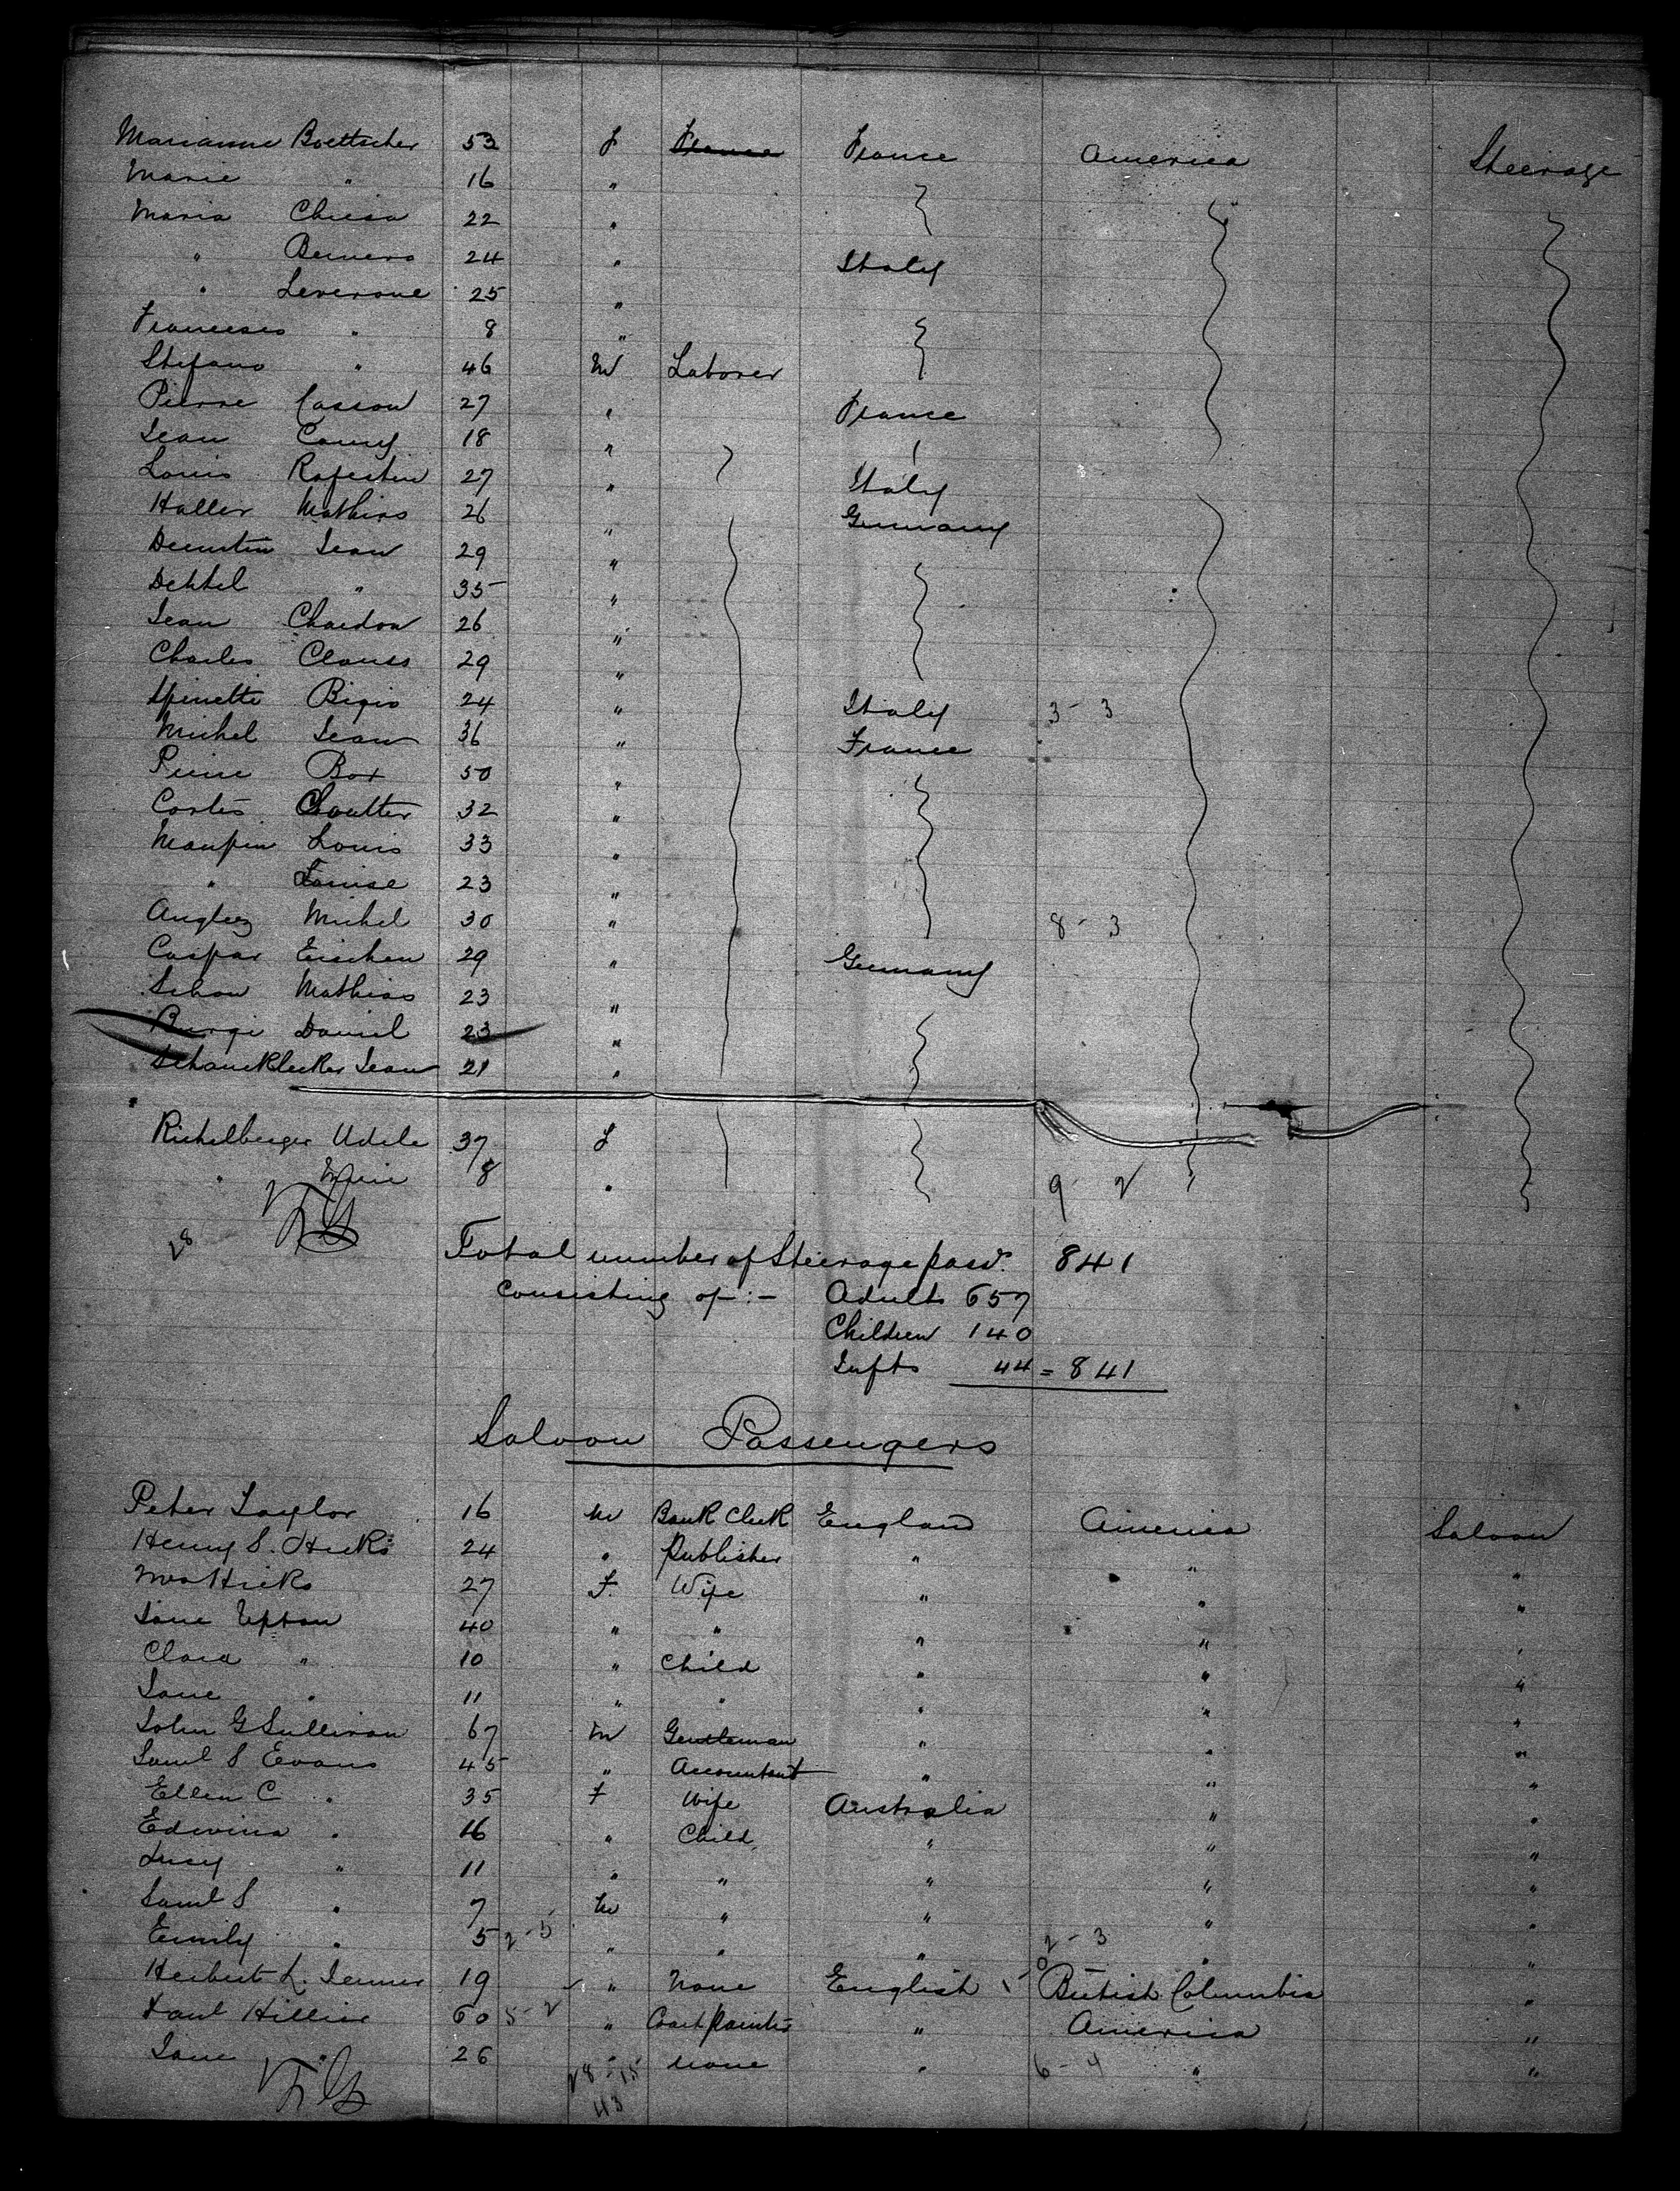 Marianne Boettscher 53 f France France America Steerage
Marie " 16 "
Maria Chiesa 22 "
" 24 " Italy
" Leverone 25 "
Francesco " 8 "
Stefano " 46 M Laborer
Pierre Casson 27 " France
Jean 18 "
Louis 27 " Italy
Haller Mathias 26 " Germany
Jean 29 "
" 35 "
Jean Chardon 26 "
Charles Clauss 29 "
Spinetti Bigio 24 " Italy 3 - 3
Michel Jean 36 " France
Pierre Box 50 "
32 "
Maupin Louis 33 "
" Louise 23 "
Michel 30 " 8 - 3
Caspar Eischen 29 " Germany
Schon Mathias 23 "
Burgi Daniel 23 "
Jean 21 "
37 f
" 8 " 9 2
28
Total number of Steerage pass. 841
Consisting of :- Adults 657
Children 140
Infts 44 = 841
Saloon Passengers
Peter Taylor 16 M Bank Clerk England America Saloon
Henry S. Hicks 24 " Publisher " " "
Mrs Hicks 27 F. Wife " " "
Jane Upton 40 " " " " "
Clara " 10 " Child " " "
Jane " 11 " " " " "
John G Sullivan 67 M Gentleman " " "
Saml S Evans 45 " Accountant " " "
Ellen C " 35 F Wife Australia " "
Edwina " 16 " Child " " "
Lucy " 11 " " " " "
Saml S " 7 M " " " "
Emily " 5 2-5 " " " 2-3 " "
Herbert L. Jenner 19 " None English British Columbia "
Hillier 60 5-2 " Coach Painter " America "
Jane " 26 " None " 6-4 " "
28-15
43